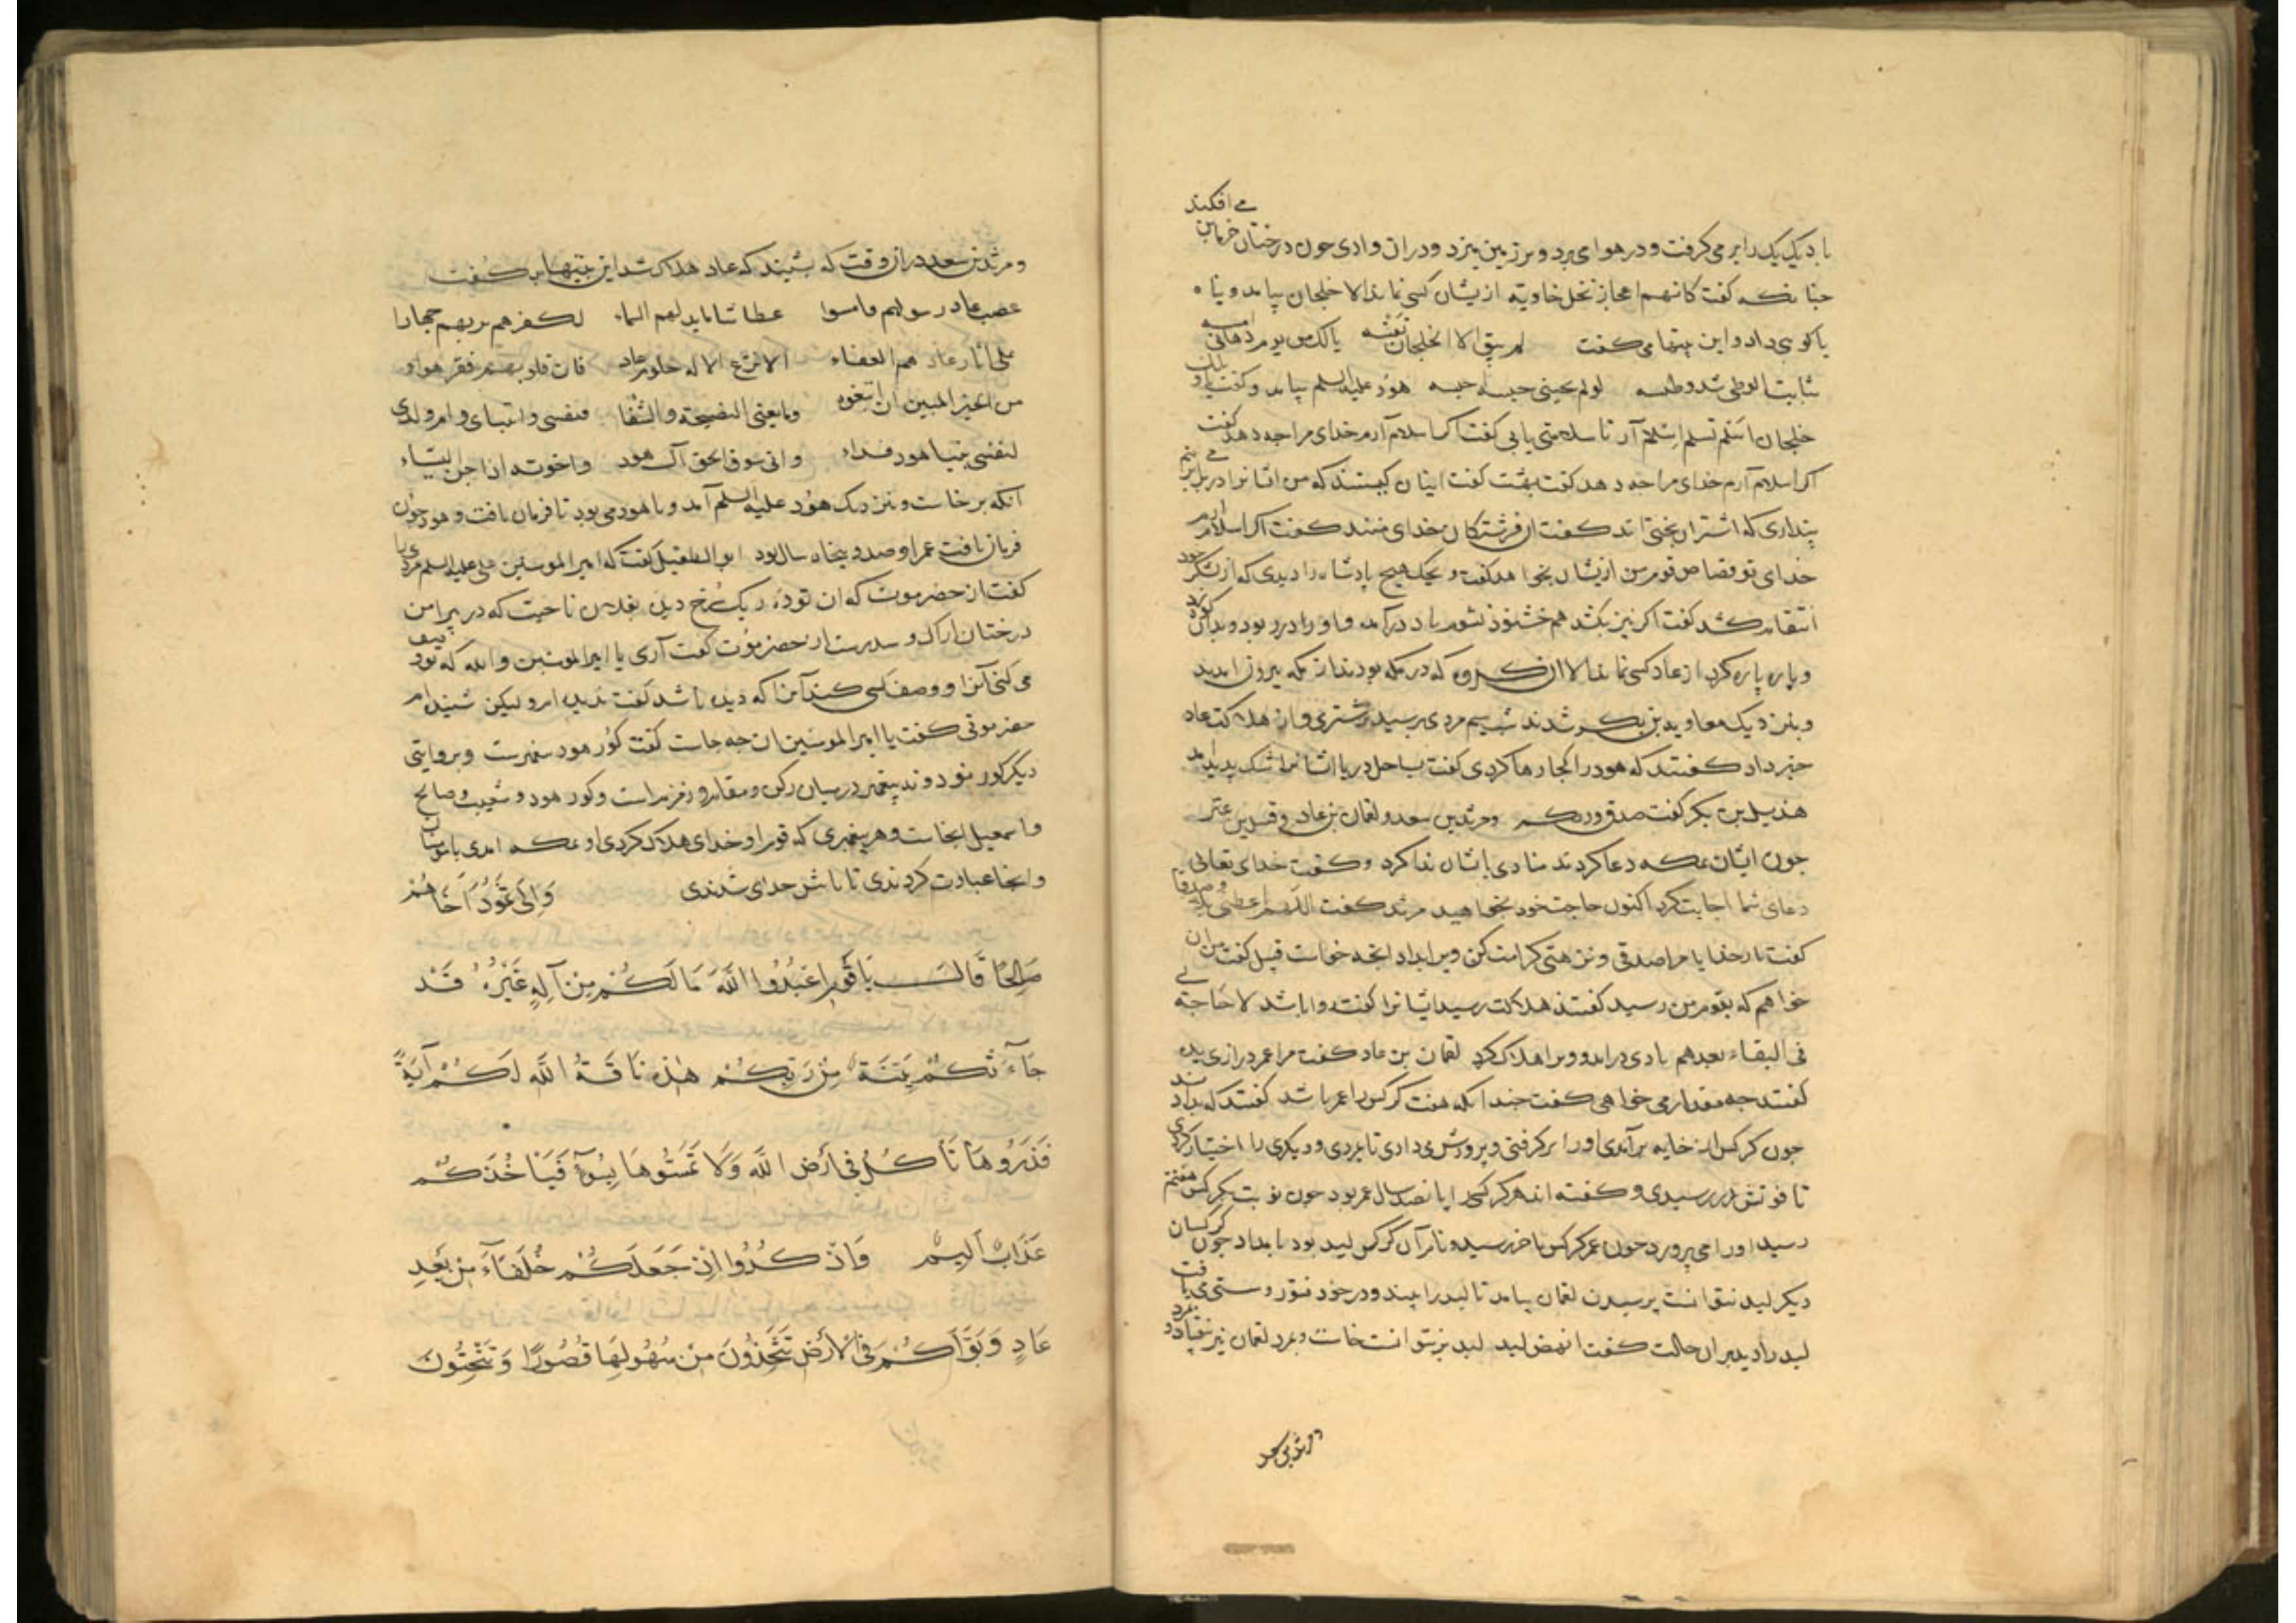 باد یک یک را بر می‌گرفت و در هوا می‌برد و بر زمین میزد و در آن وادی چون درختان خرما بن می افکند
چنانکه گفت کانهم اعجاز نخل خاویة از یشان کسی نماند الا خلجان بیامد و پناه
با کوهی داد و این بیتها می گفت لم یبق الا الخلجان نفسه یا لک من یوم دهانی امسه
ثابت الوطی شدید وطسه لو لم یجینی جیته اجسه هود علیه السلم بیامد و گفت
خلجان اسلم تسلم اسلام آر تا سلامتی یابی گفت اگر اسلام آرم خدای مرا چه دهد گفت
اگر اسلام آرم خدای مرا چه دهد گفت بهشت گفت اینان کیستند که من ایشانرا در بر می بینم
پنداری که اشتران بختی اند گفت آن فرشتگان خدای منند گفت اگر اسلام آرم
خدای تو قصاص قوم من ازیشان بخواهد گفت ویحک هیچ پادشاه را دیدی که از لشکر خود
انتقام کشد گفت اگر نیز بکشد هم خشنود نشوم باد درآمد و او را در ربود و بدان کوه زد
و پاره پاره کرد از عاد کسی نماند الا آن گروه که در مکه بودند از مکه بیرون آمدند
و بنزدیک معاویه بن بکر شدند شب سیم مردی برسید بر شتری و از هلاکت عاد
خبر داد گفتند که هود را کجا رها کردی گفت بساحل دریا ایشانرا شک پدید آمد
هذیل بن بکر گفت صدق ورب مکه و مرثد بن سعد و لقمان بن عاد و قیل بن عتر
چون ایشان بمکه دعا کردند منادی بایشان ندا کرد و گفت خدای تعالی
دعای شما اجابت کرد اکنون حاجت خود بخواهید مرثد گفت اللهم اعطنی برا و صدقا
گفت بار خدایا مرا صدقی و نزهتی کرامت کن ویرا بداد آنچه خواست قیل گفت من آن
خواهم که بقوم من رسید گفتند هلاکت رسید ایشانرا گفت روا باشد لا حاجة لی
فی البقاء بعدهم بادی درآمد و ویرا هلاک کرد لقمان بن عاد گفت مرا عمر درازی بده
گفتند چه مقدار می خواهی گفت چندانکه هفت کرکس را عمر باشد گفتند که بدادند
چون کرکس از خایه برآمدی او را برگرفتی و پرورش می دادی تا بمردی و دیگری را اختیار کردی
تا نوبتش در رسیدی و گفته اند هر کرکسی را پانصد سال عمر بود چون نوبت بکرکس هفتم
رسید او را می پرورد چون عمر کرکس بآخر رسید و نام آن کرکس لبد بود بامداد چون کرکسان
دیگر لبد نتوانست پریدن لقمان بیامد تا لبد را ببیند و در خود فتور و سستی می یافت
لبد را دید بران حالت گفت انهض لبد لبد بر نتوانست خاست و بمرد لقمان نیز بیفتاد و بمرد
و مرثد بن سعد
و مرثد بن سعد در آن وقت که بشنید که عاد هلاک شد این بیتها بر گفت
عصت عاد رسولهم فامسوا عطاشا ما تبلهم السماء لکفرهم بربهم جهارا
علی آثار عاد هم العفاء الا نزع الاله حلوم عاد فان قلوبهم فقر هواء
من الخیر المبین ان یعوه وما یغنی النصیحة والشفا فنفسی وابنتای وام ولدی
لنفس نبینا هود فداء وانی سوف الحق آل هود واخوته اذا جن المساء
آنکه برخاست و بنزدیک هود علیه السلم آمد و با هود می بود تا فرمان یافت و هود چون
فرمان یافت عمر او صد و پنجاه سال بود ابو الطفیل گفت که امیر المومنین علی علیه السلم مردی را
گفت از حضرموت که آن توده ریگ سرخ دیدی بفلان ناحیت که در پیرامن
درختان اراک و سدرست از حضرموت گفت آری یا امیر المومنین والله که تو وصف
می کنی آنرا و وصف کسی کند آنرا که دیده باشد گفت ندیده ام ولیکن شنیده ام
حضرموتی گفت یا امیر المومنین آن چه جاست گفت گور هود پیغمبرست و بروایتی
دیگر گور نود و نه پیغمبر در میان رکن و مقام و زمزم است و گور هود و شعیب و صالح
و اسمعیل آنجاست و هر پیغمبری که قوم او خدای هلاک کردی او بمکه آمدی با مومنان
و آنجا عبادت کردندی تا با پیش خدای شدندی وَاِلَی ثَمُودَ اَخَاهُمْ
صَالِحًا قَالَ یَا قَوْمِ اعْبُدُوا اللَّهَ مَا لَکُمْ مِنْ اِلَهٍ غَیْرُهُ قَدْ
جَآءَتْکُمْ بَیِّنَةٌ مِنْ رَبِّکُمْ هٰذِهِ نَاقَةُ اللَّهِ لَکُمْ آیَةً
فَذَرُوهَا تَأْکُلْ فِی اَرْضِ اللَّهِ وَلَا تَمَسُّوهَا بِسُوءٍ فَیَاْخُذَکُمْ
عَذَابٌ اَلِیمٌ وَاذْکُرُوا اِذْ جَعَلَکُمْ خُلَفَآءَ مِنْ بَعْدِ
عَادٍ وَبَوَّاَکُمْ فِی الْاَرْضِ تَتَّخِذُونَ مِنْ سُهُولِهَا قُصُورًا وَتَنْحِتُونَ